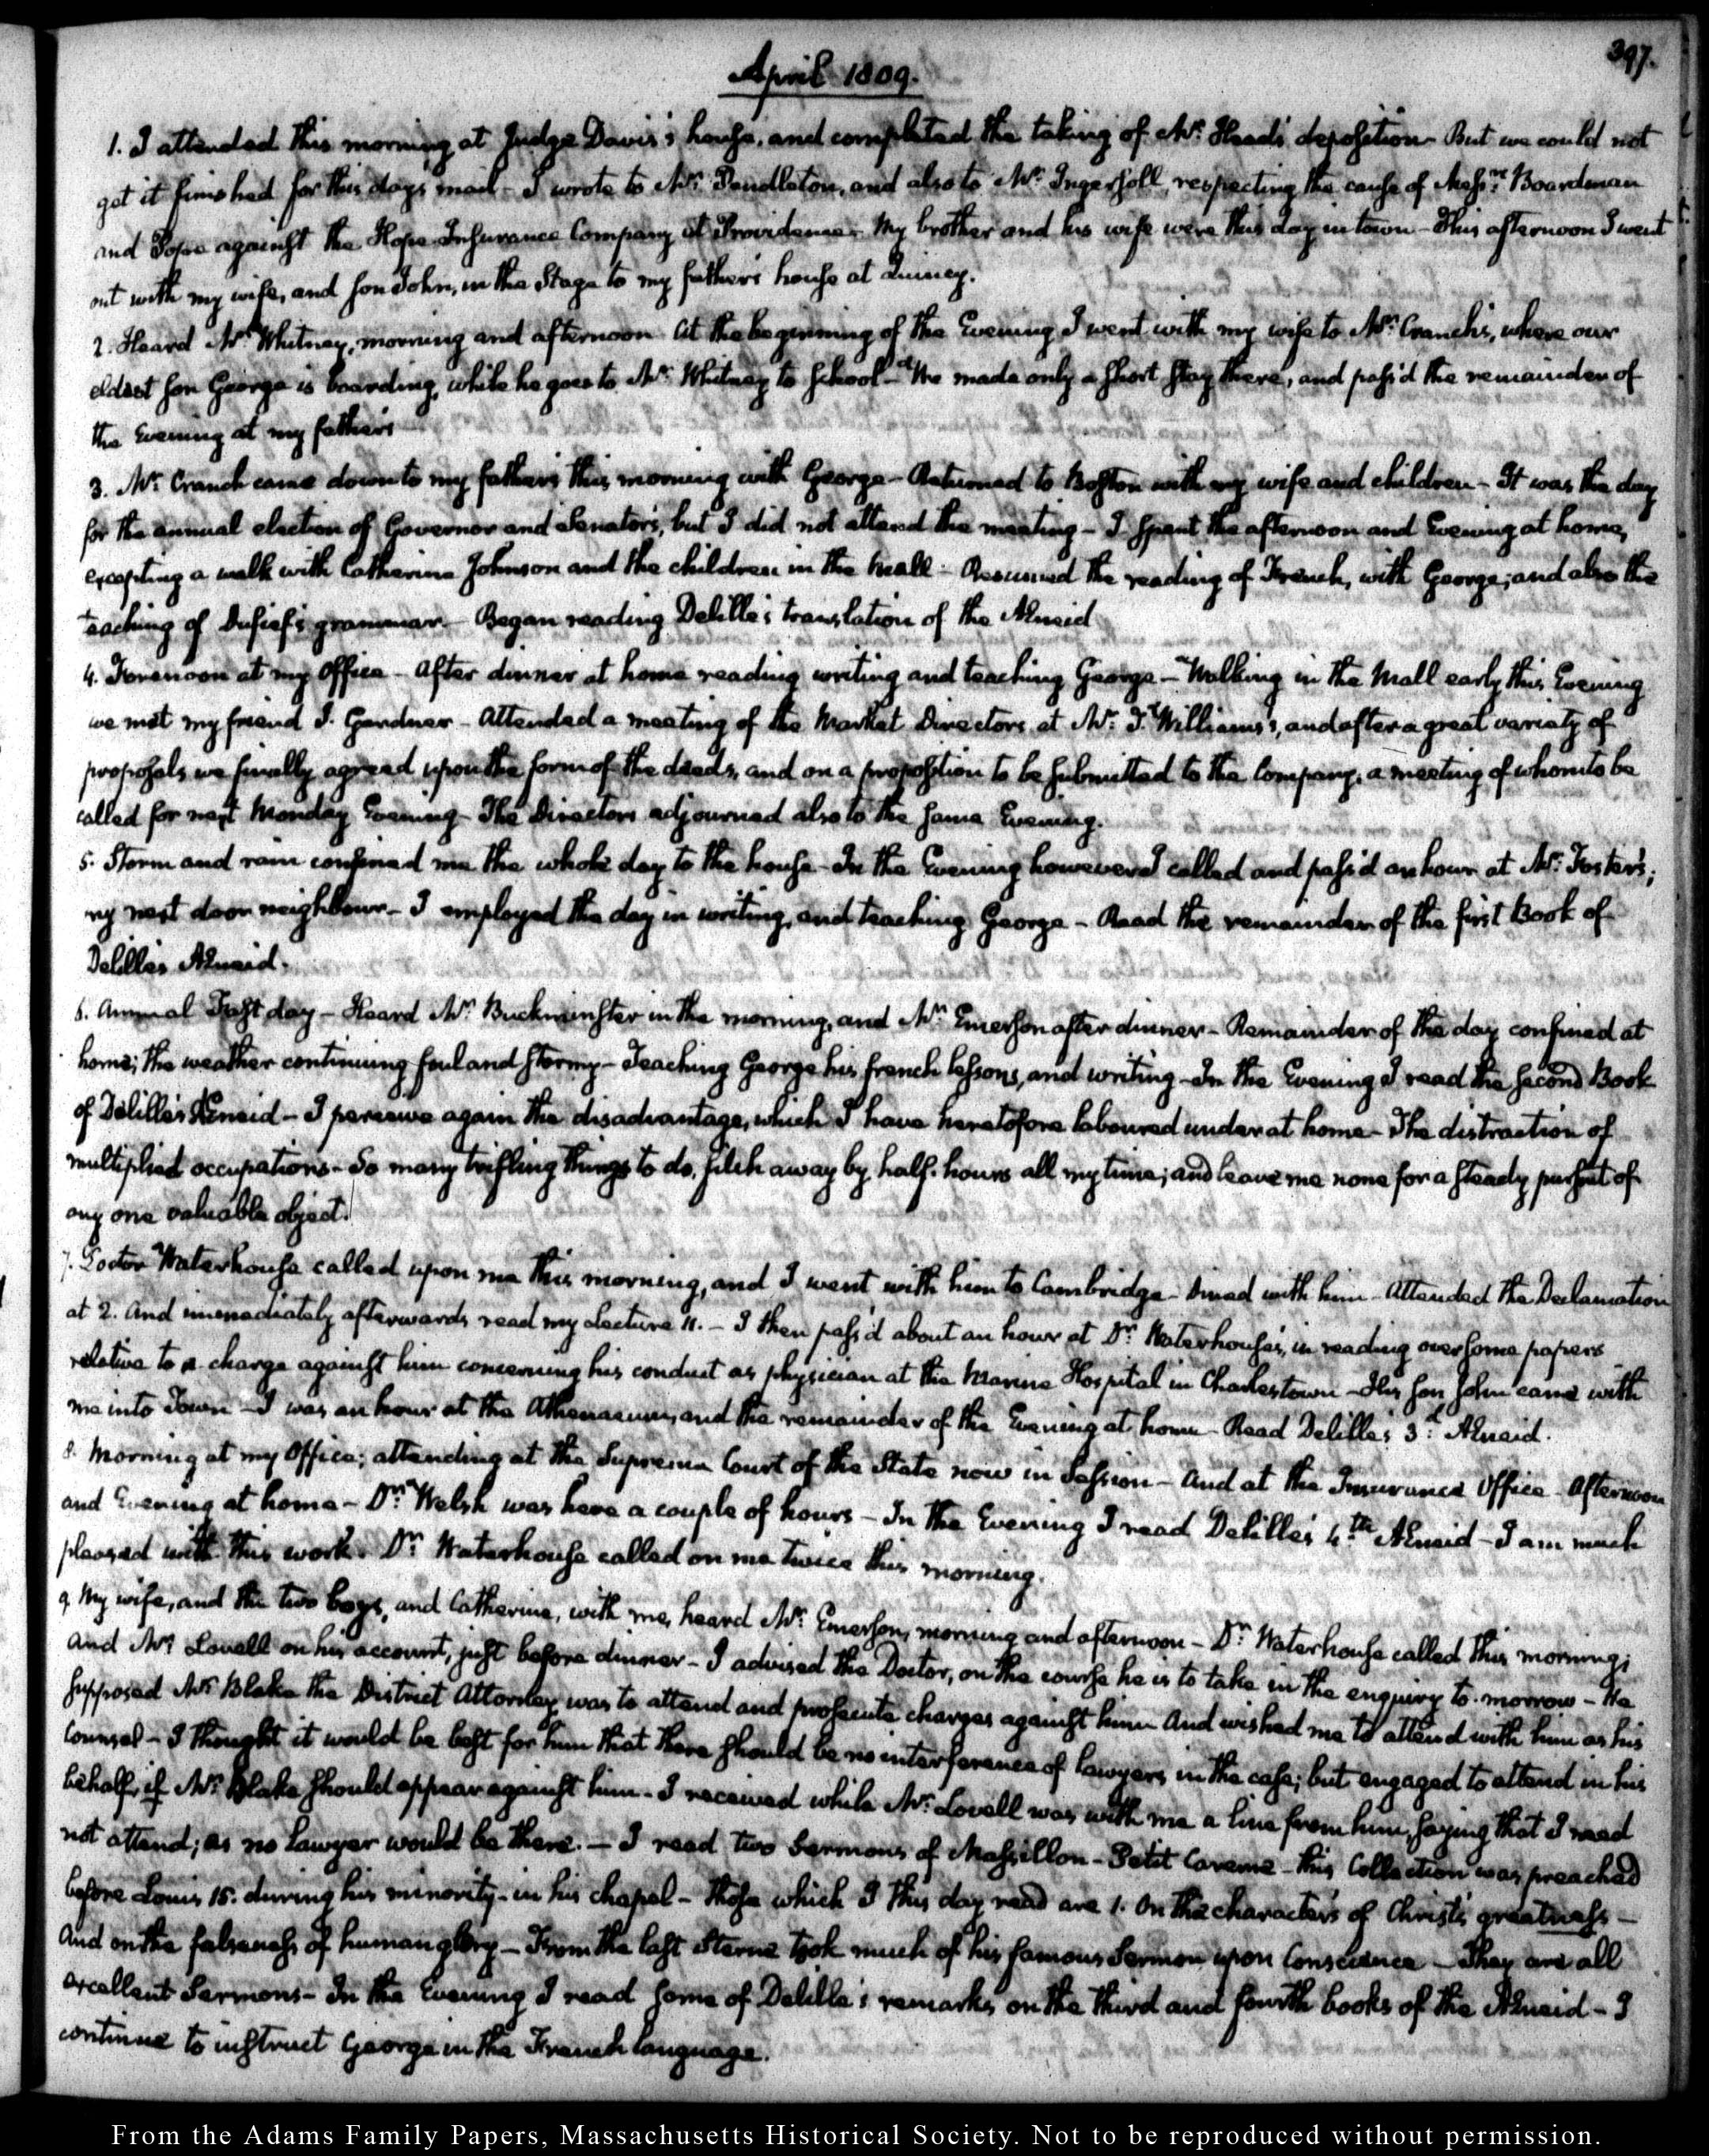 397.
April 1809.
1. I attended this morning at Judge Davis's house, and completed the taking of Mr: Head's deposition— But we could not
get it finished for this day's mail— I wrote to Mr: Pendleton, and also to Mr: Ingersoll, respecting the cause of Messrs: Boardman
and Pope against the Hope Insurance Company at Providence. My brother and his wife were this day in town— This afternoon I went
out with my wife, and son John, in the Stage to my father's house at Quincy.
2. Heard Mr: Whitney, morning and afternoon. At the beginning of the Evening I went with my wife to Mr: Cranch's, where our
eldest son George is boarding, while he goes to Mr: Whitney to school— We made only a short stay there, and pass'd the remainder of
the Evening at my father's
3. Mr: Cranch came down to my father's this morning with George— Returned to Boston with my wife and children— It was the day
for the annual election of Governor and Senators, but I did not attend the meeting— I spent the afternoon and Evening at home,
excepting a walk with Catherine Johnson and the children in the Mall— Resumed the reading of French, with George; and also the
teaching of Dufief's grammar— Began reading Delille's translation of the Aeneid
4. Forenoon at my Office— After dinner at home reading writing and teaching George— Walking in the Mall early this Evening
we met my friend J. Gardner— Attended a meeting of the Market Directors at Mr: T. Williams's, and after a great variety of
proposals we finally agreed upon the form of the deeds, and on a proposition to be submitted to the Company, a meeting of whom is to be
called for next Monday Evening— The Directors adjourned also to the same Evening.
5. Storm and rain confined me the whole day to the house— In the Evening however I called and pass'd an hour at Mr: Foster's;
my next door neighbour— I employed the day in writing, and teaching George— Read the remainder of the first Book of
Delille's Aeneid.
6. Annual Fast day— Heard Mr: Buckminster in the morning, and Mr: Emerson after dinner— Remainder of the day confined at
home; the weather continuing foul and stormy— Teaching George his french lessons, and writing— In the Evening I read the second Book
of Delille's Aeneid— I perceive again the disadvantage, which I have heretofore laboured under at home— The distraction of
multiplied occupations— So many trifling things to do, filch away by half-hours all my time; and leave me none for a steady pursuit of
any one valuable object.
7. Doctor Waterhouse called upon me this morning, and I went with him to Cambridge— Dined with him— Attended the Declamation
at 2. And immediately afterwards read my lecture 11.— I then pass'd about an hour at Dr: Waterhouse's, in reading over some papers
relative to a charge against him concerning his conduct as physician at the Marine Hospital in Charlestown— His son John came with
me into Town— I was an hour at the Athenaeum, and the remainder of the Evening at home— Read Delille's 3d: Aeneid.
8. Morning at my Office; attending at the Supreme Court of the State now in Session— And at the Insurance Office. Afternoon
and Evening at home— Dr: Welsh was here a couple of hours— In the Evening I read Delille's 4th Aeneid— I am much
pleased with this work. Dr: Waterhouse called on me twice this morning.
9. My wife, and the two boys, and Catherine, with me, heard Mr: Emerson, morning and afternoon— Dr: Waterhouse called this morning;
and Mr: Lovell on his account, just before dinner— I advised the Doctor, on the course he is to take in the enquiry to-morrow— He
supposed Mr: Blake the District Attorney was to attend and prosecute charges against him And wished me to attend with him as his
Counsel— I thought it would be best for him that there should be no interference of lawyers in the case; but engaged to attend in his
behalf, if Mr: Blake should appear against him— I received while Mr: Lovell was with me a line from him, saying that I need
not attend; as no Lawyer would be there.— I read two Sermons of Massillon— Petit Careme— this Collection was preached
before Louis 15. during his minority— in his chapel— Those which I this day read are 1. On the characters of Christ's greatness—
And on the falseness of human glory— From the last Sterne took much of his famous Sermon upon Conscience— They are all
excellent Sermons— In the Evening I read some of Delille's remarks on the third and fourth books of the Aeneid— I
continue to instruct George in the French language.
From the Adams Family Papers, Massachusetts Historical Society. Not to be reproduced without permission.